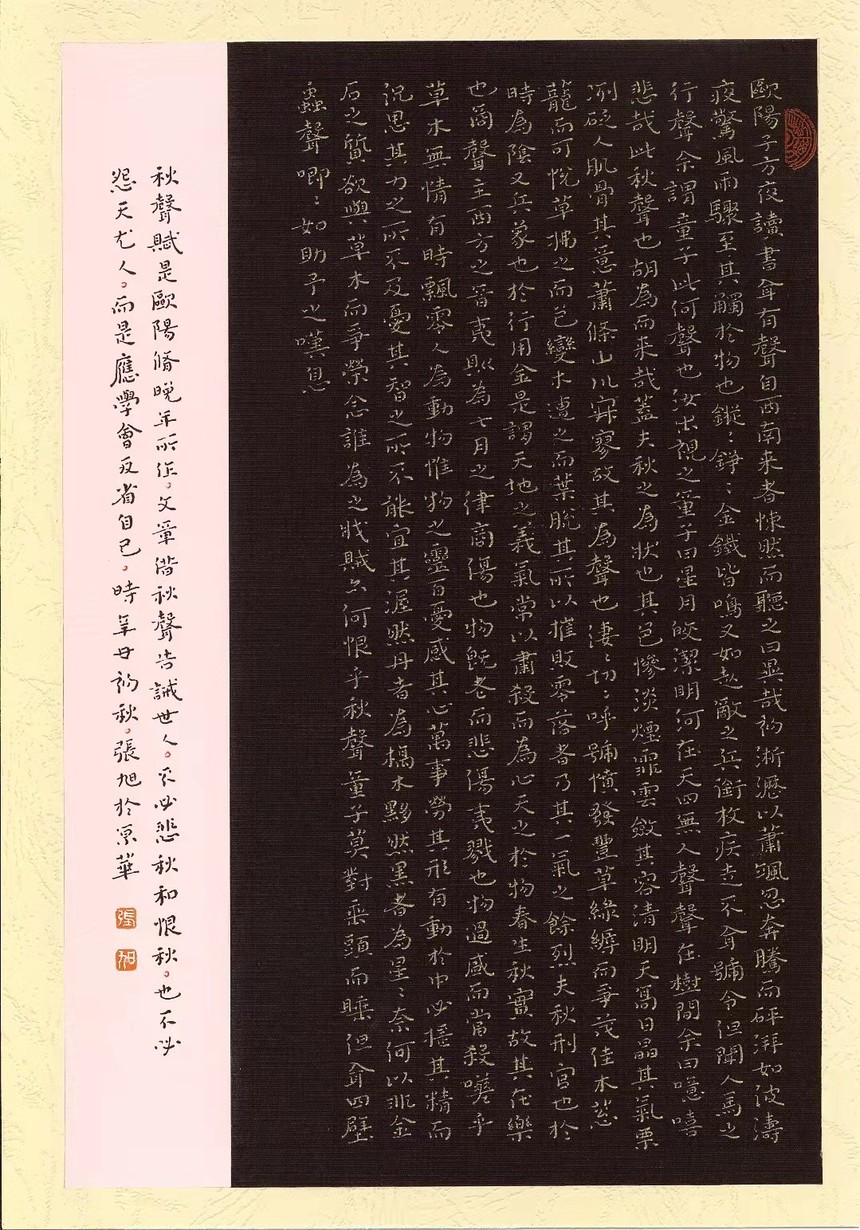 歐陽子方夜讀書聞有聲自西南来者悚然而聽之曰異哉初淅瀝以蕭颯忽奔騰而砰湃如波濤
夜驚風雨驟至其觸於物也鏦〻錚〻金鐵皆鳴又如赴敵之兵銜枚疾走不聞號令但聞人馬之
行聲余謂童子此何聲也汝出視之童子曰星月皎潔明河在天四無人聲聲在樹間余曰噫嘻
悲哉此秋聲也胡為而来哉蓋夫秋之為狀也其色慘淡煙霏雲斂其容清明天高日晶其氣栗
冽砭人肌骨其意蕭條山川寂寥故其為聲也淒〻切〻呼號憤發豐草綠縟而爭茂佳木蔥
蘢而可悅草拂之而色變木遭之而葉脫其所以摧敗零落者乃其一氣之餘烈夫秋刑官也於
時為陰又兵象也於行用金是謂天地之義氣常以肅殺而為心天之於物春生秋實故其在樂
也商聲主西方之音夷則為七月之律商傷也物既老而悲傷夷戮也物過盛而當殺嗟乎
草木無情有時飄零人為動物惟物之靈百憂感其心萬事勞其形有動於中必搖其精而
況思其力之所不及憂其智之所不能宜其渥然丹者為槁木黟然黑者為星〻奈何以非金
石之質欲與草木而爭榮念誰為之戕賊亦何恨乎秋聲童子莫對垂頭而睡但聞四壁
蟲聲唧〻如助予之嘆息
秋聲賦是歐陽脩晚年所作。文章借秋聲告誡世人。不必悲秋和恨秋。也不必
怨天尤人。而是應學會反省自己。時辛丑初秋。張旭於京華
張
旭